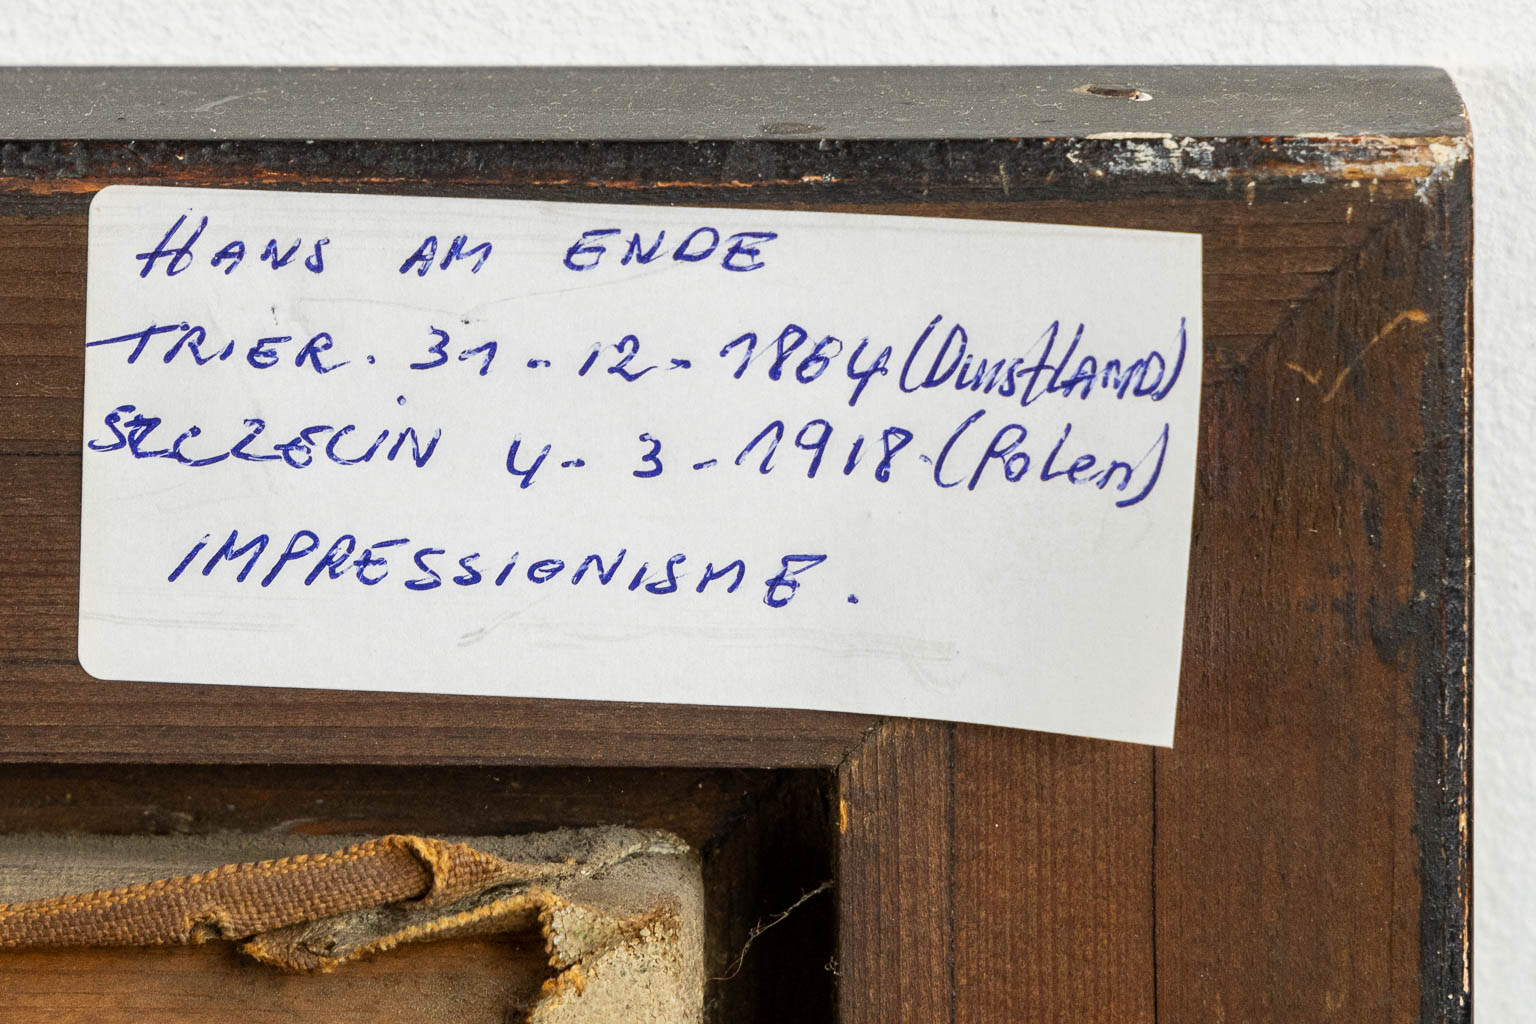 HANS AM ENDE
TRIER. 31-12-1864 (DUISTLAND)
SZCZECIN 4-3-1918.(Polen)
IMPRESSIONISME.